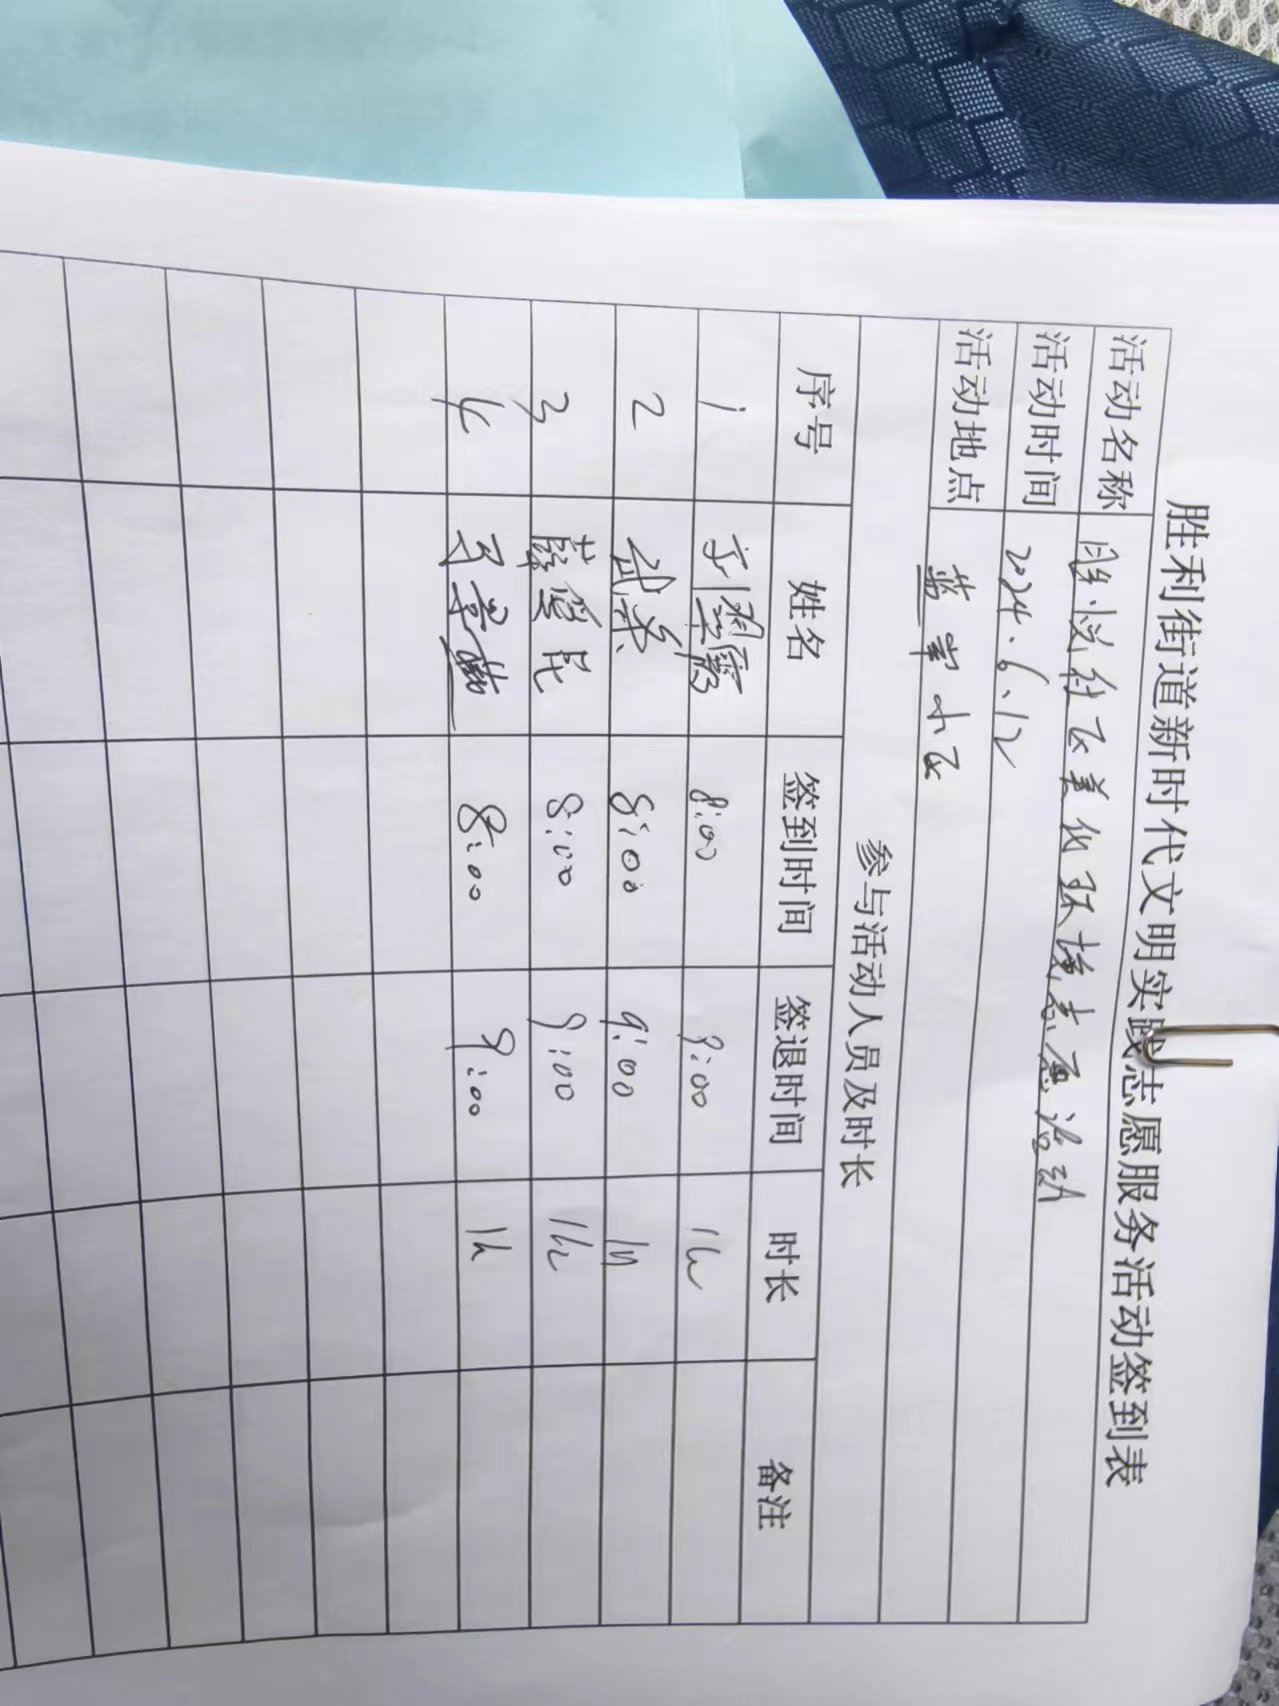 胜利街道新时代文明实践志愿服务活动签到表
活动名称 胜悦社区美化环境志愿活动
活动时间 2024.6.12
活动地点 小区
参与活动人员及时长
序号 姓名 签到时间 签退时间 时长 备注
1 8:00 9:00 1h
2 8:00 9:00 1h
3 薛爱民 8:00 9:00 1h
4 8:00 9:00 1h